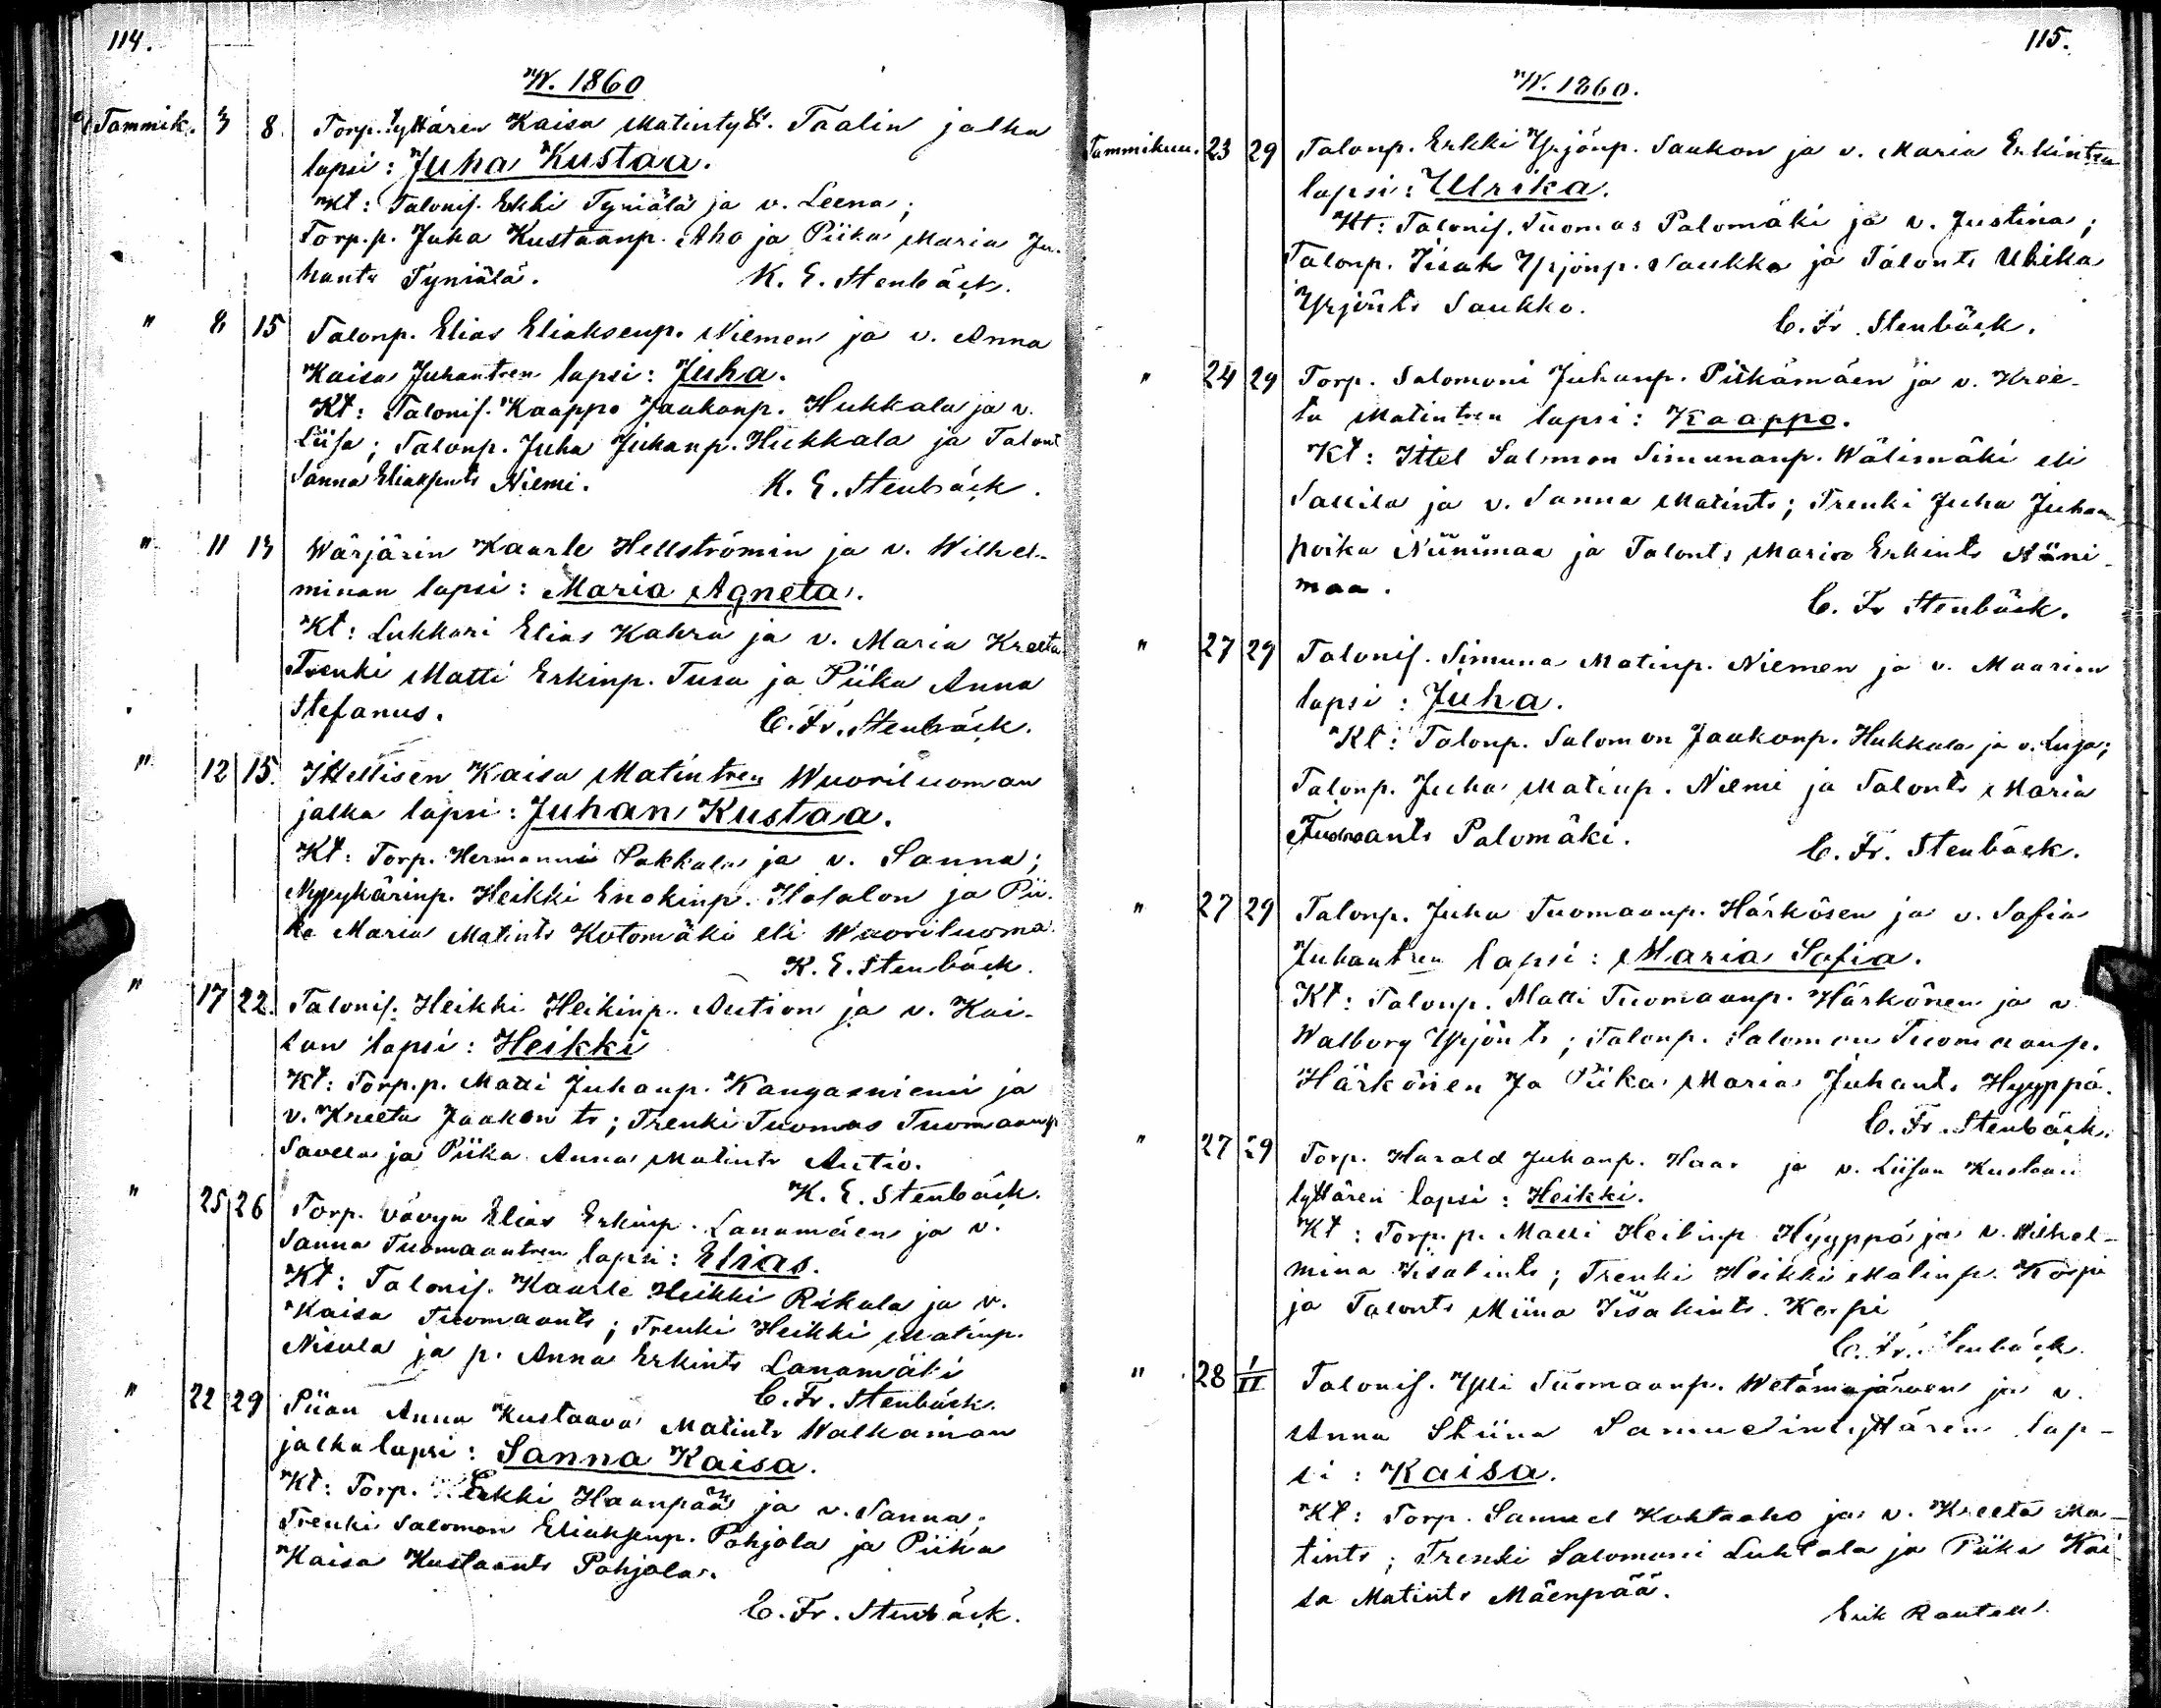 114.
W. 1860
Tammik. 3 8. Torp. tyttären Kaisa Matintytt. Taalin jalka
lapsi: Juha Kustaa.
Kt: Talonis. Erkki Tyniälä ja v. Leena;
Torp.p. Juha Kustaanp. Aho ja Piika Maria Ju-
hants Tyniälä. K. E. Stenbäck.
" 8 15 Talonp. Elias Eliaksenp. Niemen ja v. Anna
Kaisa Juhantren lapsi: Juha.
Kt: Talonis. Kaappo Jaakonp. Hukkala ja v.
Liisa; Talonp. Juha Juhanp. Hukkala ja Talont
Sanna Eliaksents Niemi. K. E. Stenbäck.
" 11 13 Wärjärin Kaarle Hellströmin ja v. Wilhel-
minan lapsi: Maria Agneta.
Kt: Lukkari Elias Kahra ja v. Maria Kreeta
Trenki Matti Erkinp. Tusa ja Piika Anna
Stefanus. C. Fr. Stenbäck.
" 12 15. Ittellisen Kaisa Matintren Wuoriluoman
jalka lapsi: Juhan Kustaa.
Kt: Torp. Hermanni Pakkala ja v. Sanna;
Heikki Enokinp. ja Pii-
ka Maria Matints Kotomäki eli Wuoriluoma.
K. E. Stenbäck.
" 17 22. Talonis. Heikki Heikinp. Aution ja v. Kai-
san lapsi: Heikki
Kt: Torp.p. Matti Juhanp. Kangasniemi ja
v. Kreeta Jaakonts; Trenki Tuomas Tuomaanp
Savela ja Piika Anna Matints Autio.
K. E. Stenbäck.
" 25 26 Torp. vävyn Elias Erkinp. Lanamäen ja v.
Sanna Tuomaantren lapsi: Elias.
Kt: Talonis. Kaarle Heikki Rikala ja v.
Kaisa Tuomaants; Trenki Heikki Matinp.
Nisula ja p. Anna Erkints Lanamäki
C. Fr. Stenbäck.
" 22 29 Piian Anna Kustaava Matints Walkaman
jalkalapsi: Sanna Kaisa.
Kt: Torp. Erkki Haanpää ja v. Sanna;
Trenki Salomon Eliaksenp. Pohjola ja Piika
Kaisa Kustaants Pohjola.
C. Fr. Stenbäck.
115.
W. 1860.
Tammikuu. 23 29 Talonp. Erkki Yrjönp. Saukon ja v. Maria Erkintren
lapsi: Ulrika.
Kt: Talonis. Tuomas Palomäki ja v. Justina;
Talonp. Iisak Yrjönp. Saukko ja Talonts Ulrika
Yrjönts Saukko. C. Fr. Stenbäck.
" 24 29 Torp. Salomoni Juhanp. Pitkämäen ja v. Kree-
ta Matintren lapsi: Kaappo.
Kt: Ittel Salomon Simunanp. Wälimäki eli
Sallila ja v. Sanna Matints; Trenki Juha Juhan
poika Niinimaa ja Talonts Maria Erkints Niini-
maa. C. Fr Stenbäck.
" 27 29 Talonis. Simuna Matinp. Niemen ja v. Maarian
lapsi: Juha.
Kt: Talonp. Salomon Jaakonp. Hukkala ja v.
Talonp. Juha Matinp. Niemi ja Talonts Maria
Tuomaants Palomäki. C. Fr. Stenbäck.
" 27 29 Talonp. Juha Tuomaanp. Härkösen ja v. Sofia
Juhantren lapsi: Maria Sofia.
Kt: Talonp. Matti Tuomaanp. Härkönen ja v.
Walborg Yrjönts; Talonp. Salomon Tuomaanp.
Härkönen Ja Piika Maria Juhants Hyyppä.
C. Fr. Stenbäck.
" 27 29 Torp. Harald Juhanp. Haar ja v. Liisan Kustaan
tyttären lapsi: Heikki.
Kt: Torp.p. Matti Heikinp Hyyppä ja v. Wilhel-
mina Iisakints; Trenki Heikki Matinp. Korpi
ja Talonts Miina Iisakints. Korpi
C. Fr. Stenbäck.
" 28 1/II Talonis. Ylli Tuomaanp. Wetämäjärven ja v.
Anna Stiina Samuelintyttären lap-
si: Kaisa.
Kt: Torp. Samuel Kohtaaho ja v. Kreeta Ma-
tints; Trenki Salomoni Luhtala ja Piika Kai-
sa Matints Mäenpää.
Erik Rautell.